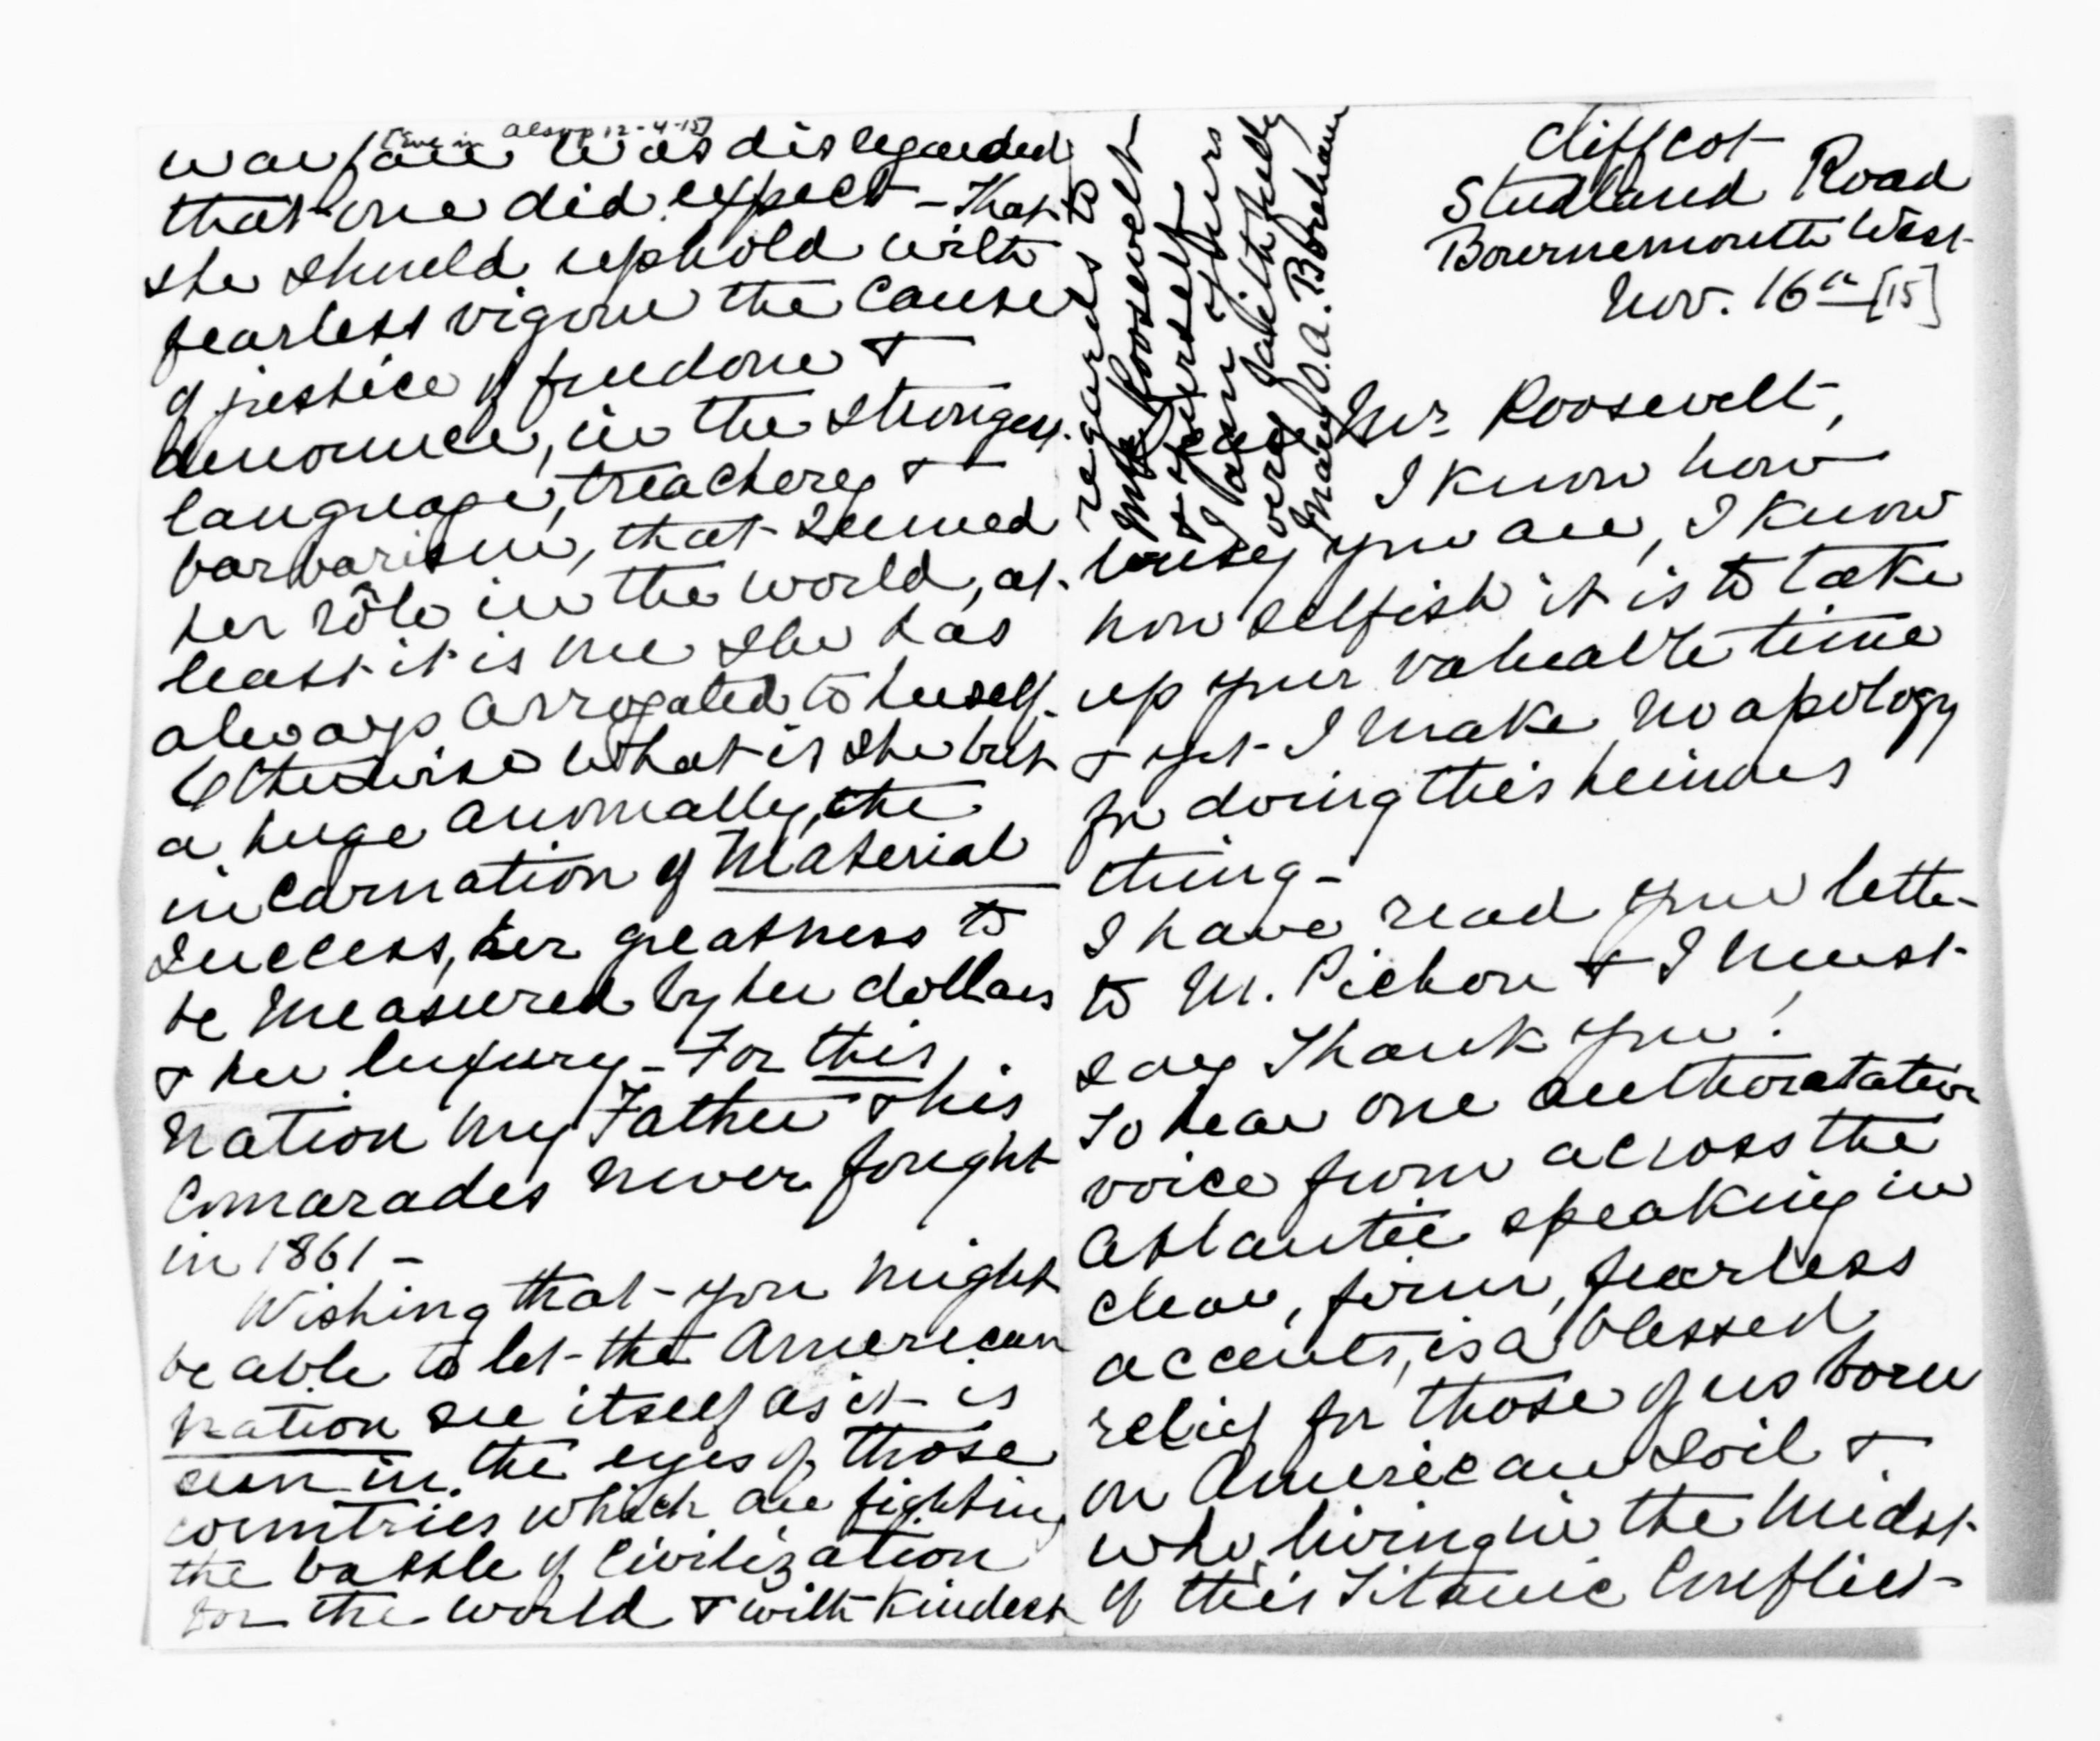 Cliffcot
Studland Road
Bournemouth West
Nov. 16th [15]
Dear Mr Roosevelt,
I know how
busy you are, I know
how selfish it is to take
up your valuable time
& yet I make no apology
for doing this heinous
thing -
I have read your letter
to M. Pichon & I must
say Thank you!
To hear one authoratative
voice from across the
Atlantic speaking in
clear, firm, fearless
accents, is a blessed
relief for those of us born
on American soil &
who living in the midst
of this Titanic Conflict
warfare was disregarded
that one did expect - That
she should uphold with
fearless vigour the cause
of justice & freedom &
denounce, in the strongest
language, treachery &
barbarism, that seemed
her rôle in the world, at
least it is one she has
always arrogated to herself.
Otherwise what is she but
a huge anomally, the
incarnation of Material
Success, her greatness to
be measured by her dollars
& her luxury - For this
nation my Father & his
Comarades never fought
in 1861 -
Wishing that you might
be able to let the American
nation see itself as it is
seen in the eyes of those
countries which are fighting
the battle of Civilization
for the world & with kindest
regards to
Mrs Roosevelt
& yourself
I am yours
very faithfully
Mary O. A. Boreham
12-4-15]